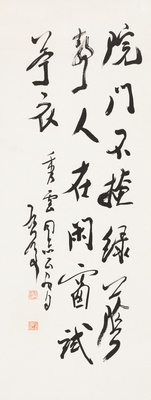 院门不掩绿荫
静人在闲窗试
苧衣
秀云同志正句